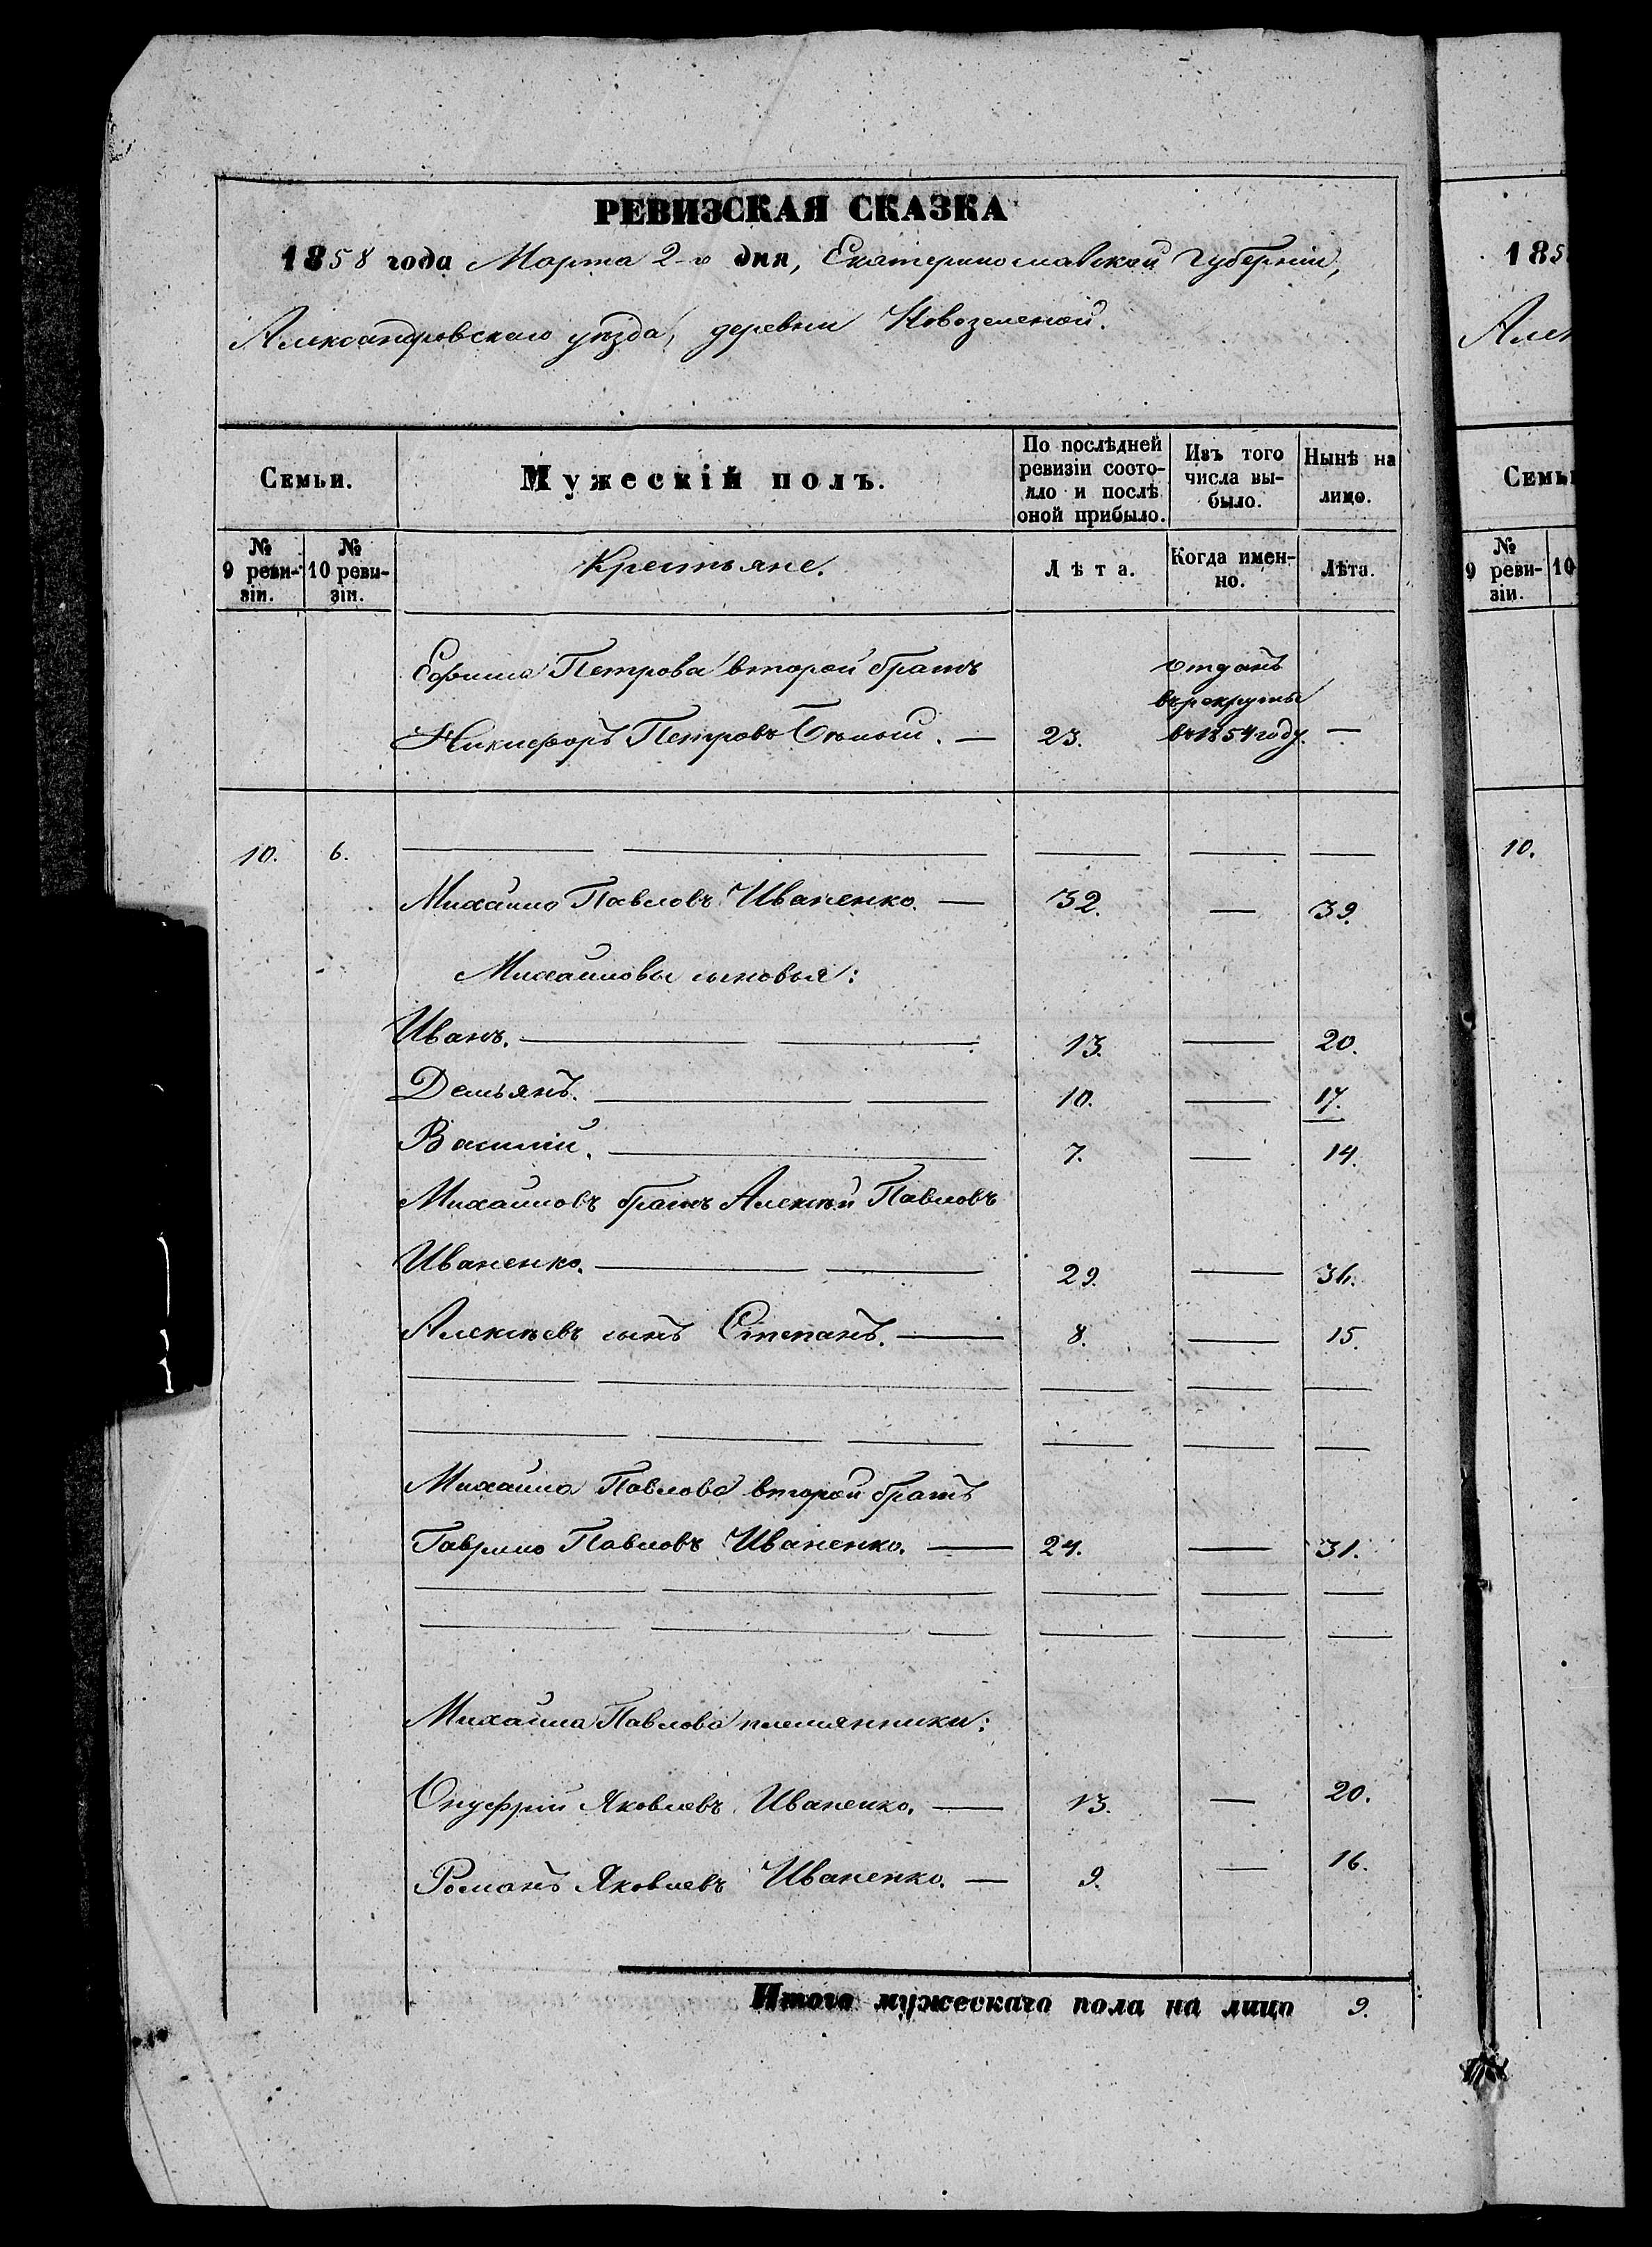 РЕВИЗСКАЯ СКАЗКА
1858 года Марта 2-го дня, Екатеринославской Губерніи,
Александровскаго уѣзда, деревни Новозеленой.
Семьи.
Мужескій полъ.
По послѣдней ревизіи состояло и послѣ оной прибыло.
Изъ того числа выбыло.
Нынѣ на лицо.
№ 9 ревизіи.
№ 10 ревизіи.
Крестьяне.
Лѣта.
Когда именно.
Лѣта.
Ефима Петрова второй братъ
отданъ
въ рекруты
Никифоръ Петровъ Бѣлый. — 23. въ 1854 году. —
10. 6.
Михайло Павловъ Иваненко. — 32. — 39.
Михайловы сыновья:
Иванъ. — 13. — 20.
Демьянъ. — 10. — 17.
Василій. — 7. — 14.
Михайловъ братъ Алексѣй Павловъ
Иваненко. — 29. — 36.
Алексѣевъ сынъ Степанъ. — 8. — 15.
Михайла Павлова второй братъ
Гаврило Павловъ Иваненко. — 24. — 31.
Михайла Павлова племянники:
Онуфрій Яковлевъ Иваненко. — 13. — 20.
Романъ Яковлевъ Иваненко. — 9. — 16.
Итого мужескаго пола на лицо 9.
185
Алек
Семьи
№ 9 ревизіи.
10
10.